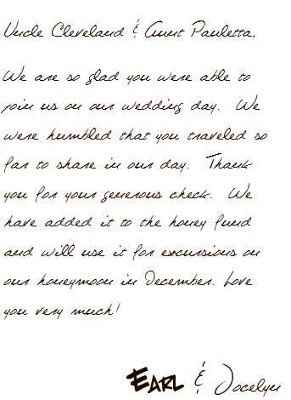 Uncle Cleveland & Aunt Pauletta,
We are so glad you were able to
join us on our wedding day. We
were humbled that you traveled so
far to share in our day. Thank
you for your generous check. We
have added it to the honey fund
and will use it for excursions on
our honeymoon in December. Love
you very much!
EARL & Jocelyn